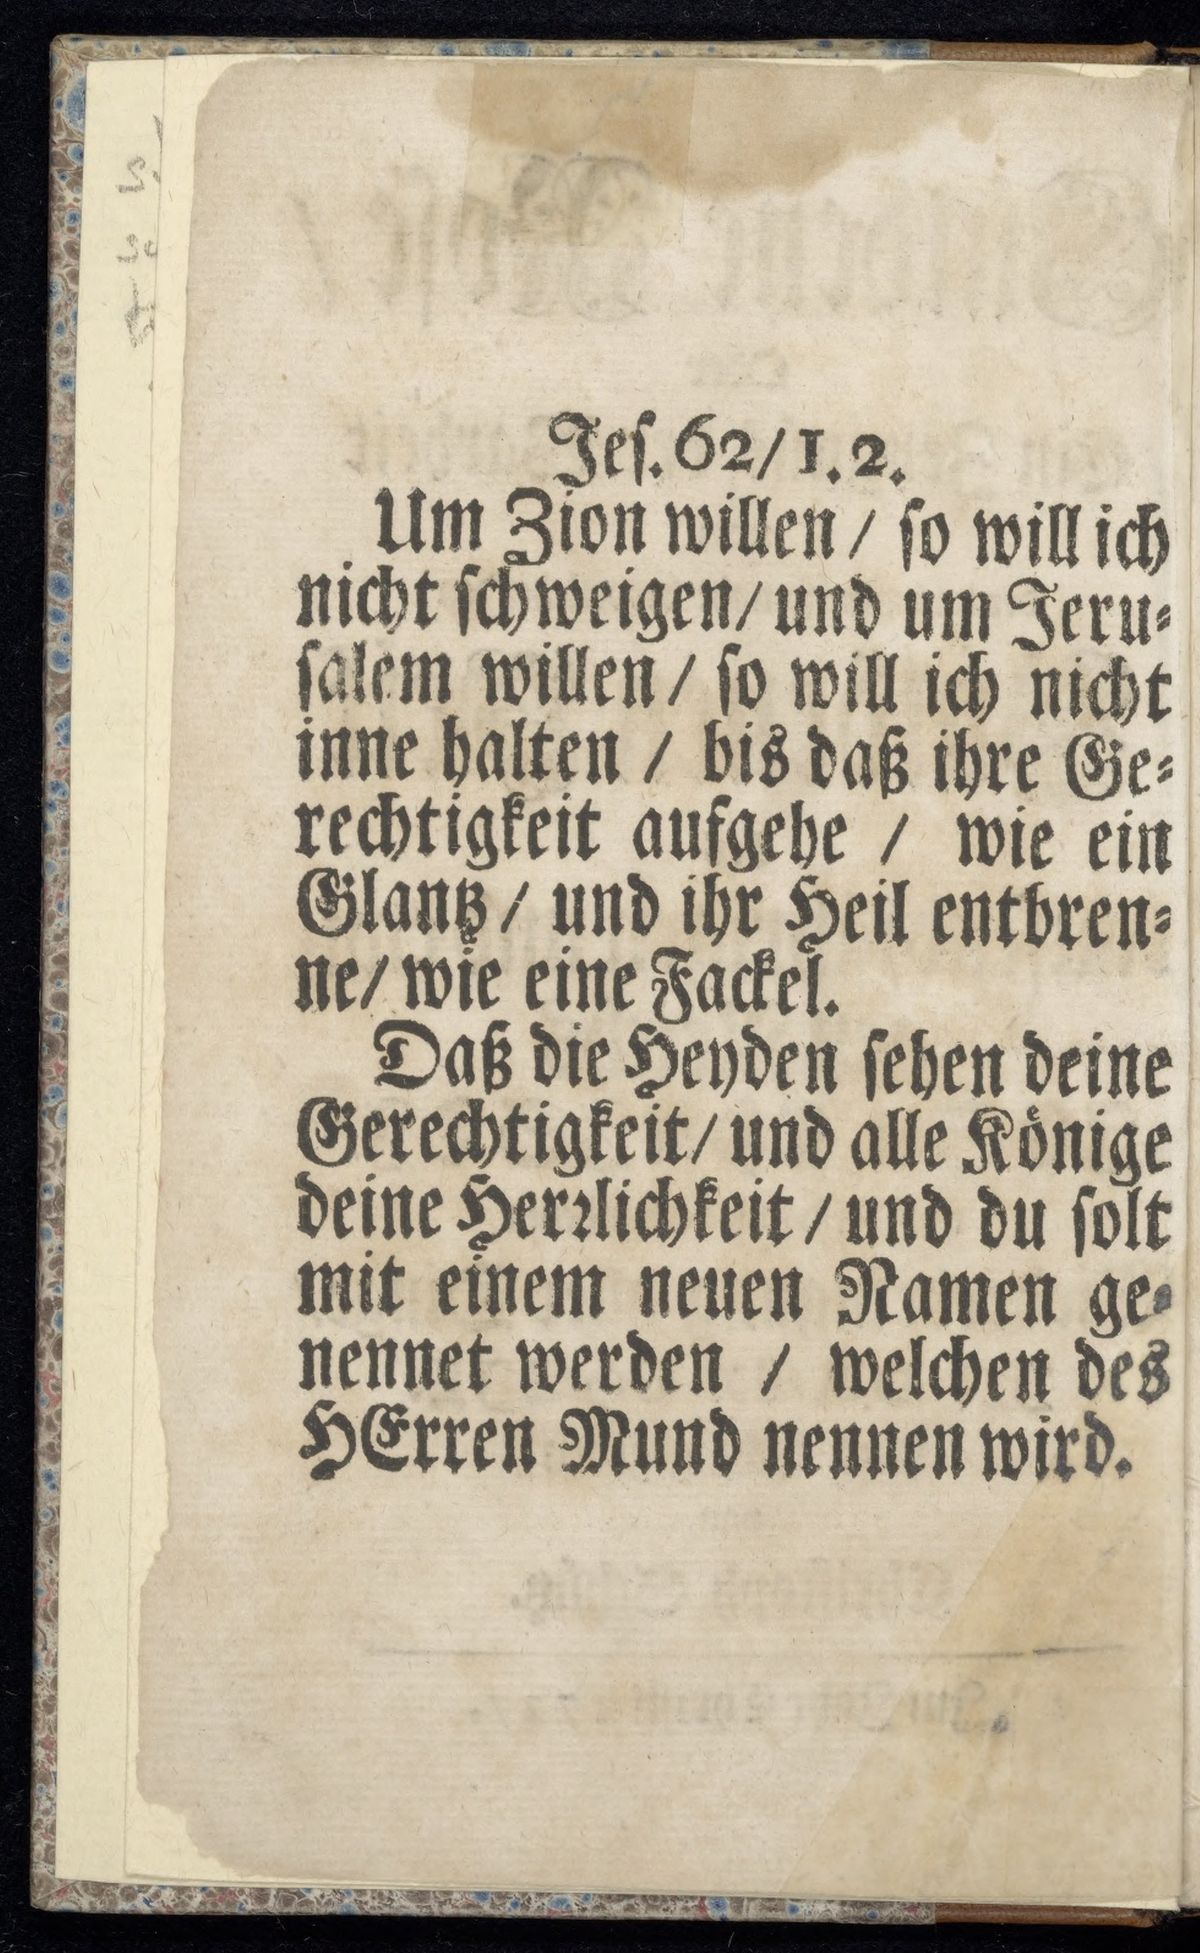 Jeſ. 62/1. 2.
Um Zion willen / ſo will ich
nicht ſchweigen/ und um Jeru⸗
ſalem willen / ſo will ich nicht
inne halten / bis daß ihre Ge⸗
rechtigkeit aufgehe / wie ein
Glantz / und ihr Heil entbren⸗
ne/ wie eine Fackel.
Daß die Heyden ſehen deine
Gerechtigkeit/ und alle Könige
deine Herꝛlichkeit / und du ſolt
mit einem neuen Namen ge⸗
nennet werden / welchen des
HErren Mund nennen wird.